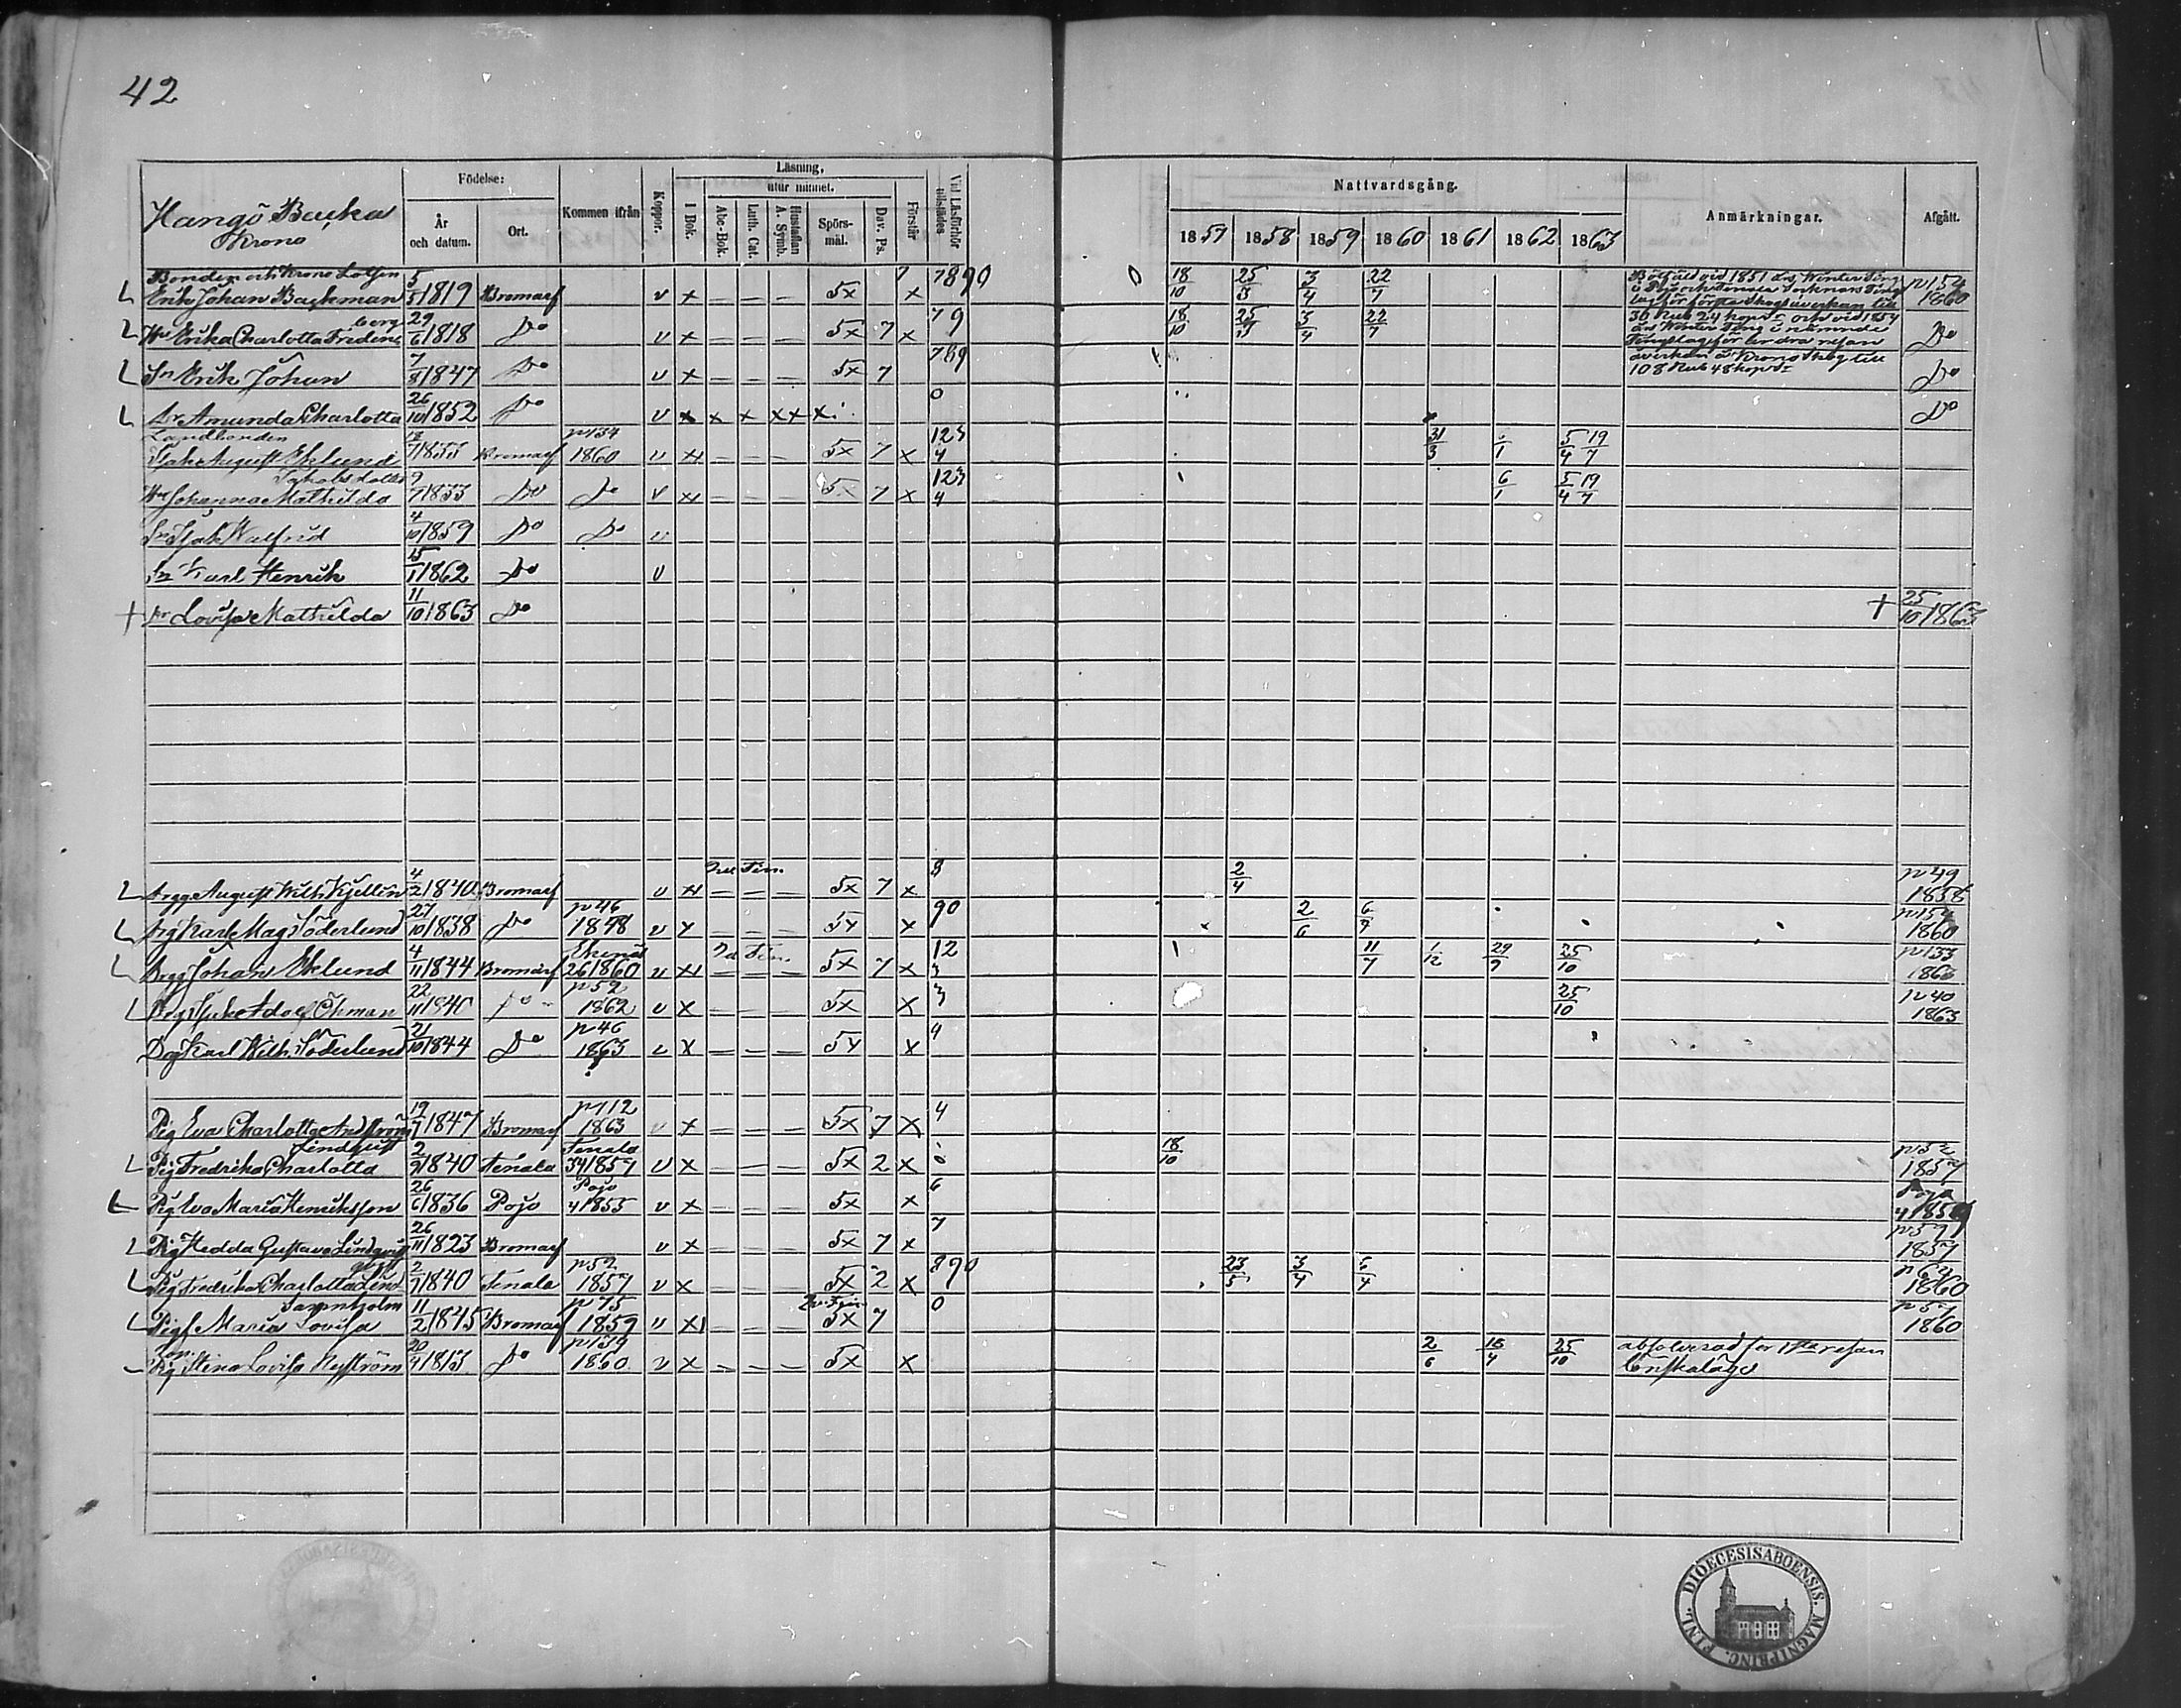 42
Hangö Backa
Krono
Födelse:
År och datum.
Ort.
Kommen ifrån
Koppor.
Läsning,
utur minnet.
I Bok.
Abc-Bok.
Luth. Cat.
Hustaflan A. Symb.
Spörs-mål.
Dav. Ps.
Förstår
Vid Läsförhör tillstädes
Nattvardsgång.
1857 1858 1859 1860 1861 1862 1863
Anmärkningar.
Afgått.
Bonden och Krono Lotsen
Erik Johan Backman 5/5 1819 Bromarf v x — — — 5x x 7890 0 18/10 25/3 3/4 22/7 p 154 1860
Bötfäld vid 1851 års Winter Ting
i Pojo och Tenala Socknars Ting
lag för första Skogsåverkan till
30 Rub 24 kop Sr och vid 1854
års Winter Ting i nämnde
Tingslag för andra resan
åverkan å Krono Skog till
108 Rub 48 kop Sr
Hu Erika Charlotta Fridenberg 29/6 1818 Do v x — — — 5x 7 x 79 18/10 25/3 3/4 22/7 Do
Sn Erik Johan 7/8 1847 Do v x — — — 5x 7 789 Do
Dr Amanda Charlotta 26/10 1852 Do v x x x x x x 0 Do
Landbonden
Isak August Eklund 7 1833 Bromarf p 134 1860 v x — — — 5x 7 x 123 4 31/3 5/4 19/7
Jakobs dotter
Hu Johanna Mathilda 9/7 1833 Do Do v x — — — 5x 7 x 123 4 6/1 5/4 19/7
Sn Isak Walfrid 4/10 1859 Do Do v
Sn Karl Henrik 15/1 1862 Do v
+ Dr Lovisa Mathilda 11/10 1863 Do + 25/10 1863
Drgg August Wilh. Kjellin 4/2 1840 Bromarf v x — — — 5x 7 x 8 2/4 p 49 1858
Drg Karl Mag. Söderlund 27/10 1838 Do p 46 1858 v x — — — 5x x 90 2/6 6/7 p 154 1860
Drgg Johan Eklund 4/11 1844 Bromarf Ekenäs 26 1860 v x — — — 5x 7 x 12 3 11/7 1/12 29/9 25/10 p 133 1863
Drg Isak Adolf Öhman 22/11 1840 Do p 52 1862 v x — — — 5x x 3 25/10 p 40 1863
Drg Karl Wilh. Söderlund 21/10 1844 Do p 46 1863 v x — — — 5x x 4
Pig Eva Charlotta Andström 19/7 1847 Bromarf p 112 1863 v x — — — 5x 7 x 4
Lindqvist
Pig Fredrika Charlotta 2/9 1840 Tenala Tenala 34 1857 v x — — — 5x 2 x 18/10 p 52 1857
Pig Eva Maria Henriksson 26/6 1836 Pojo Pojo 4 1855 v x — — — 5x x 6 Pojo 4 1857
Pig Hedda Gustava Lindqvist 26/11 1823 Bromarf v x — — — 5x 7 x 7 p 59 1857
Pig Fredrika Charlotta Lindqvist 2/9 1840 Tenala p 52 1857 v x — — — 5x 2 x 890 23/5 3/4 6/4 p 62 1860
Pigf Maria Lovisa 11/2 1845 Bromarf p 75 1859 v x — — — 5x 7 0 p 57 1860
Pig Stina Lovisa Nyström 20/4 1813 Do p 139 1860 v x — — — 5x x 2/6 16/4 25/10
absolverad för 1sta resan
lönskaläge
FINL. DIOECESISABOENSIS. MAGNIPRINC.